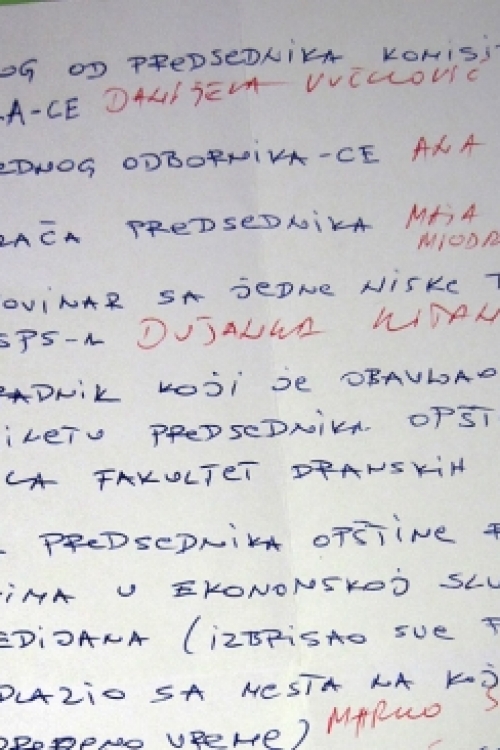 OG OD PREDSEDNIKA KOMISI
A-CE DANIJELA VUČKOVIĆ
EDNOG ODBORNIKA-CE ANA
RAČA PREDSEDNIKA MAJA
MIODR
OVINAR SA JEDNE NISKE T
SPS-A DUŠANKA
ADNIK KOJI JE OBAVLJAO
PREDSEDNIKA OPŠTI
LA FAKULTET DRAMSKIH
PREDSEDNIKA OPŠTINE
IMA U EKONOMSKOJ SLU
EDIJANA (IZBRISAO SVE
DLAZIO SA MESTA NA KOJ
VREME) MARKO